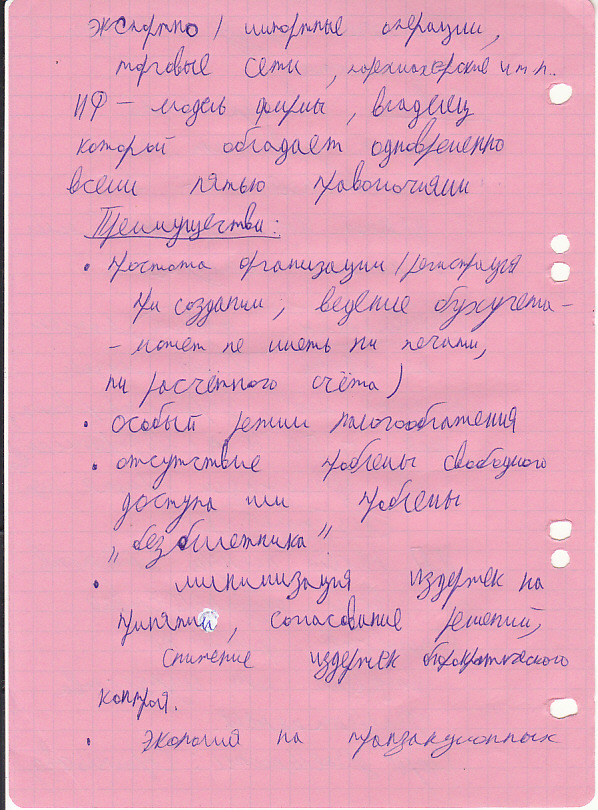 экспортно / импортные операции,
торговые сети, парикмахерские и т.п..
ИФ – модель фирмы, владелец
который обладает одновременно
всеми пятью правомочиями
Преимущества:
• простота организации (регистрация
при создании, ведение бухучета –
– может не иметь ни печати,
ни расчётного счёта)
• особый режим налогообложения
• отсутствие проблемы свободного
доступа или проблемы
„безбилетника"
• минимизация издержек на
принятии, согласование решений,
снижение издержек бюрократического
контроля.
• экономия на транзакционных